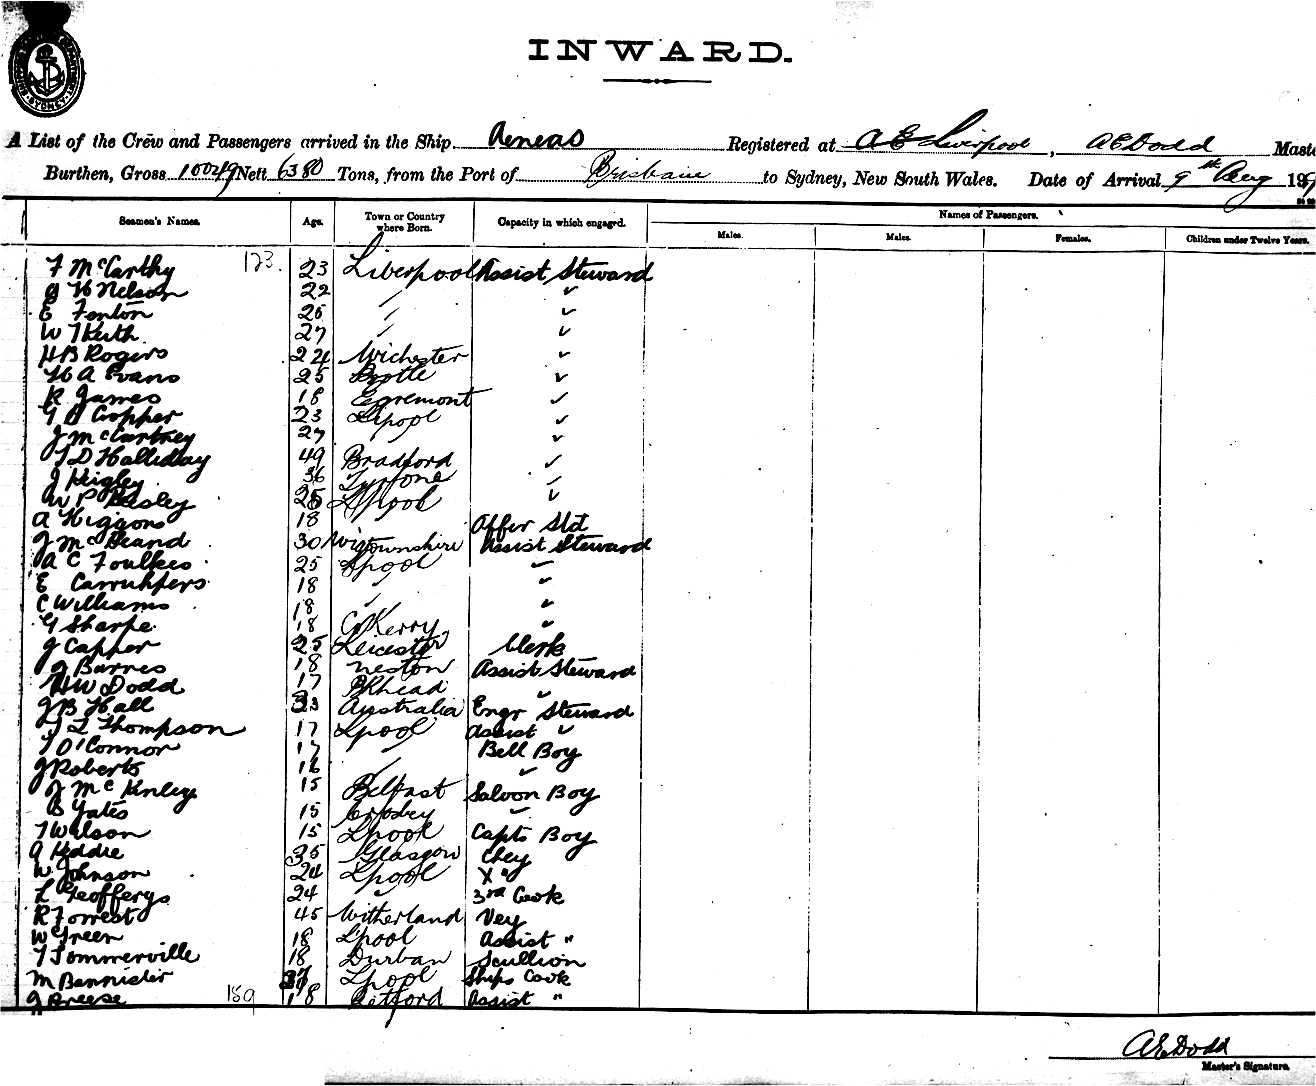 INWARD.
A List of the Crew and Passengers arrived in the Ship Aeneas Registered at Liverpool, A E Dodd Maste
Burthen, Gross 10049 Nett 6380 Tons, from the Port of Brisbane to Sydney, New South Wales. Date of Arrival 9th Aug 191
Seamen's Names. Age. Town or Country where Born. Capacity in which engaged. Names of Passengers.
Males. Males. Females. Children under Twelve Years.
F McCarthy 173. 23 Liverpool Assist Steward
J H Nelson 22 " "
E Fenton 25 " "
W T Keith 27 " "
H B Rogers 24 Wichester "
H A Evans 25 Bootle "
R James 18 Egremont "
G B Cropper 23 Lpool "
J McCartney 27 " "
T D Halliday 49 Bradford "
J Keigley 36 Tyrone "
W P Besley 25 Lpool "
A Higgons 18 " Offer Std
J Mc Beand 30 Wigtownshire Assist Steward
A C Foulkes 25 Lpool "
E Carruhpers 18 " "
C Williams 18 " "
G Sharpe 18 Co Kerry "
J Capper 25 Leicester Clerk
J Barnes 18 Neston Assist Steward
H W Dodd 17 BKhead "
J B Hall 33 Australia Engr Steward
T L Thompson 17 Lpool Assist "
T O'Connor 17 " Bell Boy
J Roberts 16 " "
J Mc Knley 15 Belfast Saloon Boy
B Yates 15 Crosbey "
T Wilson 15 Lpool Capts Boy
A Heddie 35 Glasgow Chey
W Johnson 24 Lpool X "
L Geofferys 24 " 3rd Cook
R Forrest 45 Witherland Vey
W Green 18 Lpool Assist "
T Sommerville 18 Durban Scullion
M Bannister 37 Lpool Ships Cook
J Breese 189 18 Retford Assist "
A E Dodd
Master's Signature.